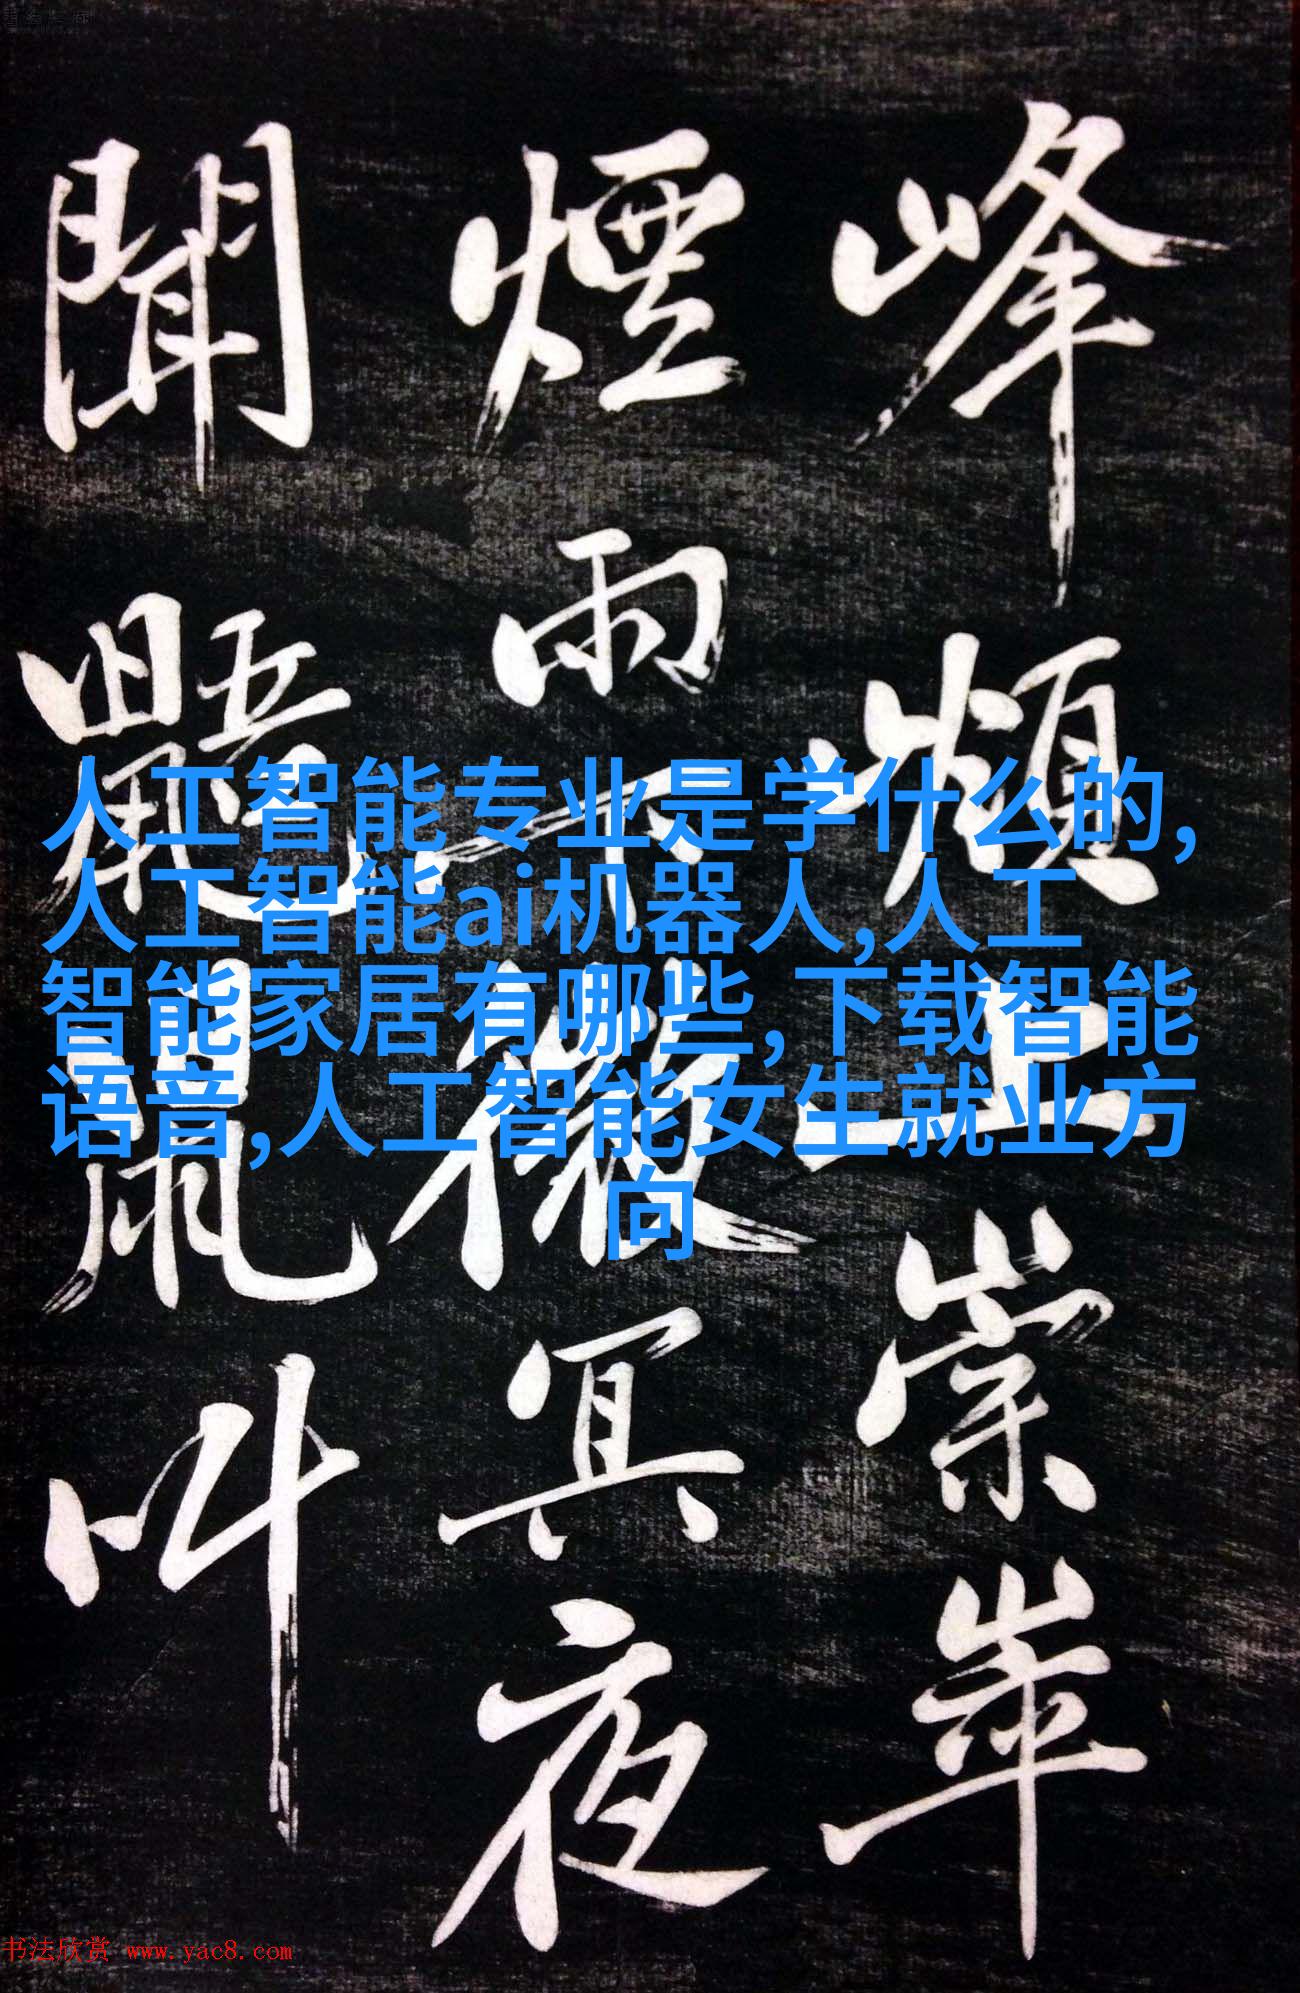 峰煩上崇崒
煙雨下微冥夜
聞鼯鼠叫
人工智能专业是学什么的,
人工智能ai机器人,人工
智能家居有哪些,下载智能
语音,人工智能女生就业方
向
书法欣赏 www.yac8.com